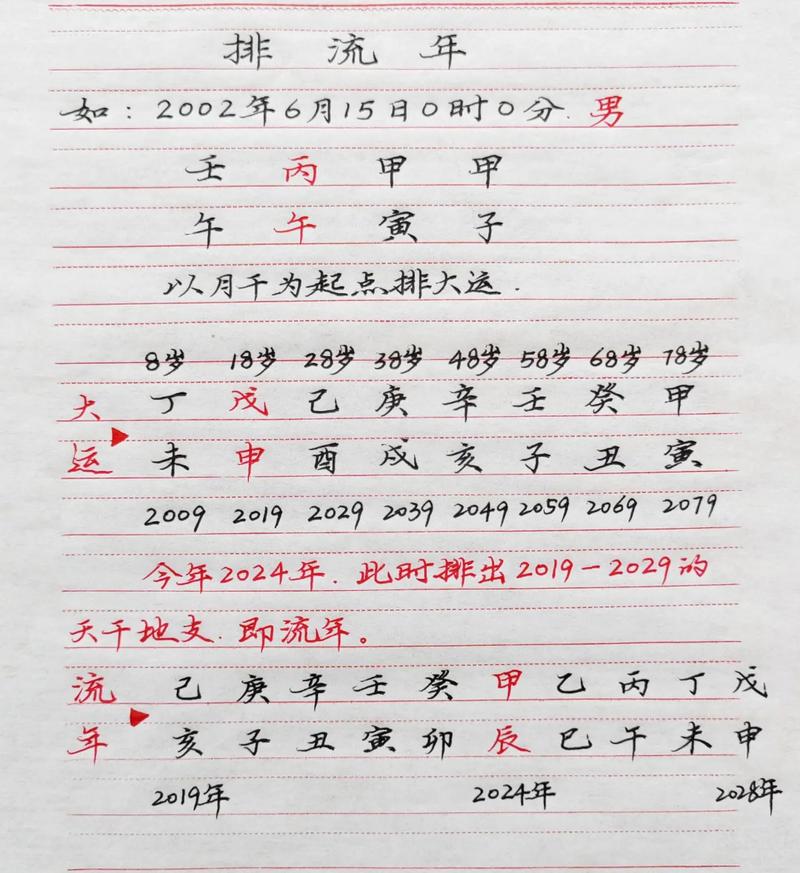 排流年
如：2002年6月15日0时0分.男
壬 丙 甲 甲
午 午 寅 子
以月干为起点排大运.
8岁 18岁 28岁 38岁 48岁 58岁 68岁 78岁
大 丁 戊 己 庚 辛 壬 癸 甲
运 未 申 酉 戌 亥 子 丑 寅
2009 2019 2029 2039 2049 2059 2069 2079
今年2024年.此时排出2019-2029的
天干地支.即流年。
流 己 庚 辛 壬 癸 甲 乙 丙 丁 戊
年 亥 子 丑 寅 卯 辰 巳 午 未 申
2019年 2024年 2028年